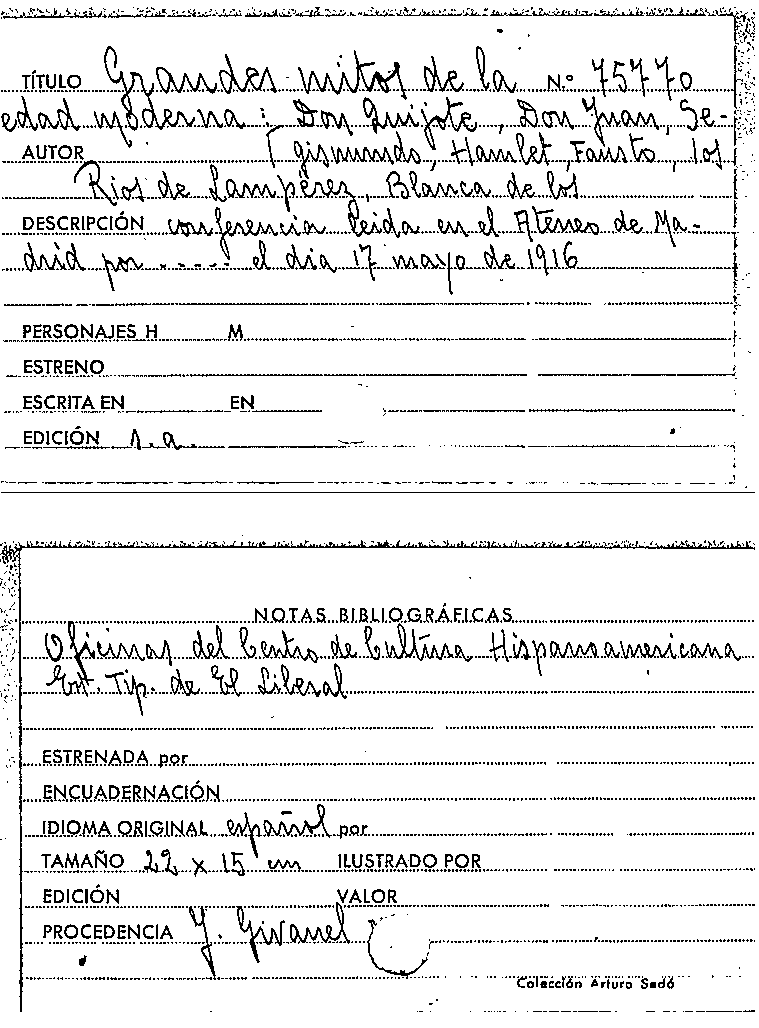 TÍTULO Grandes mitos de la N.º 75770
edad moderna: Don Quijote, Don Juan, Se-
AUTOR [gismundo, Hamlet, Fausto, los
Rios de Lampérez, Blanca de los
DESCRIPCIÓN conferencia leida en el Ateneo de Ma-
drid por ..... el dia 17 mayo de 1916
PERSONAJES H M
ESTRENO
ESCRITA EN EN
EDICIÓN s.a.
NOTAS BIBLIOGRÁFICAS
Oficinas del Centro de Cultura Hispanoamericana
Est. Tip. de El Liberal
ESTRENADA por
ENCUADERNACIÓN
IDIOMA ORIGINAL español por
TAMAÑO 22 x 15 cm ILUSTRADO POR
EDICIÓN VALOR
PROCEDENCIA J. Givanel
Colección Arturo Sedó